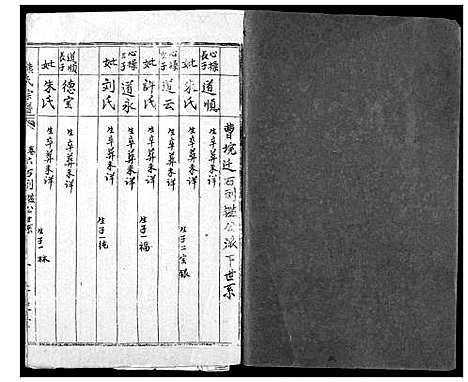 曹堍迁石刘鑑公派下世系
心樑長子 道順 生卒葬未详
妣 朱氏 生卒葬未详 生子二 宝 银
心樑次子 道云 生卒葬未详
妣 許氏 生卒葬未详 生子一 福
心樑 道永 生卒葬未详
妣 刘氏 生卒葬未详 生子一 纯
道順長子 德宝 生卒葬未详
妣 朱氏 生卒葬未详 生子一 林
氏宗譜 卷六 石刘鑑公世系